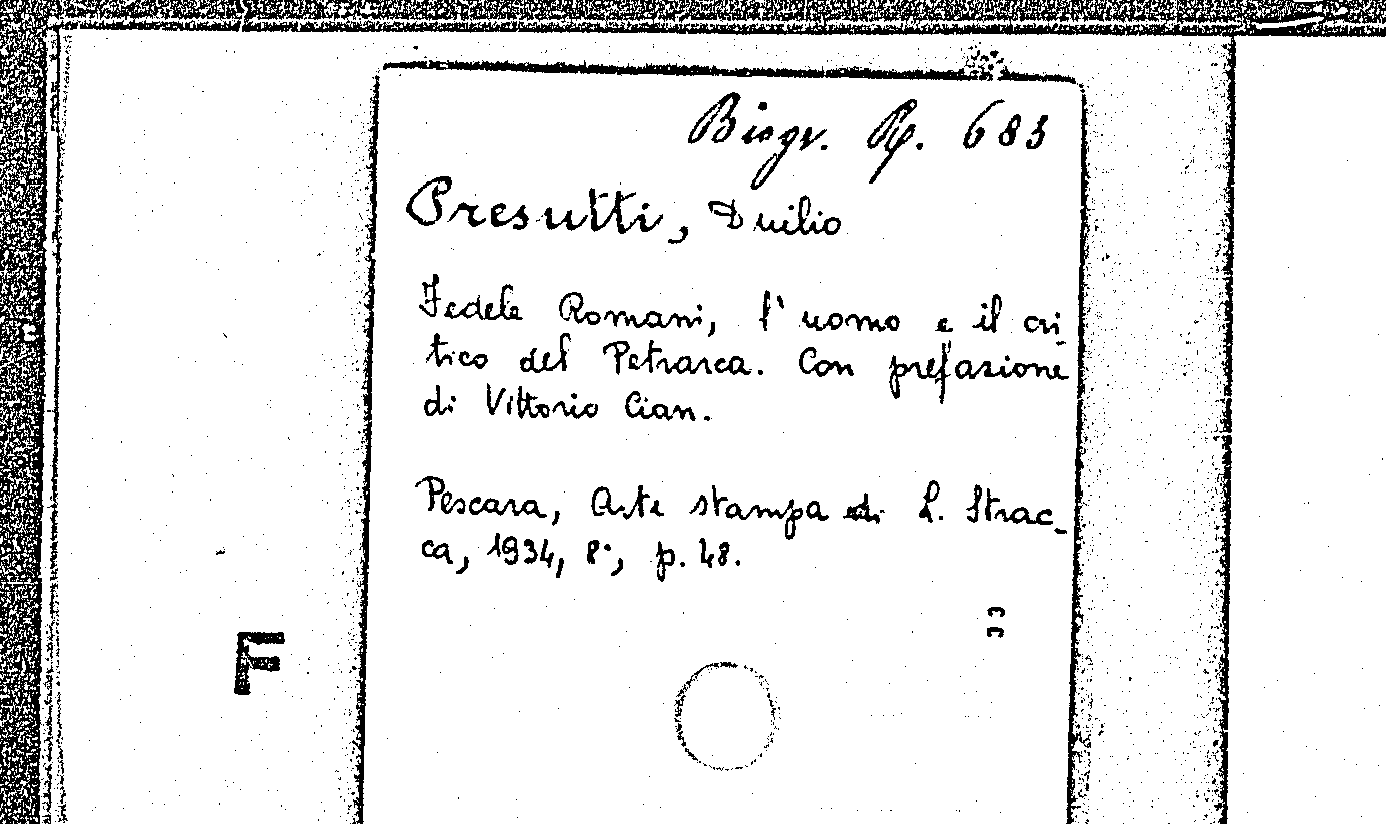 Biogr. Rp. 683
Presutti, Duilio
Fedele Romani, l'uomo e il cri-
tico del Petrarca. Con prefazione
di Vittorio Cian.
Pescara, Arte stampa di L. Strac-
ca, 1934, 8°, p. 48.
F